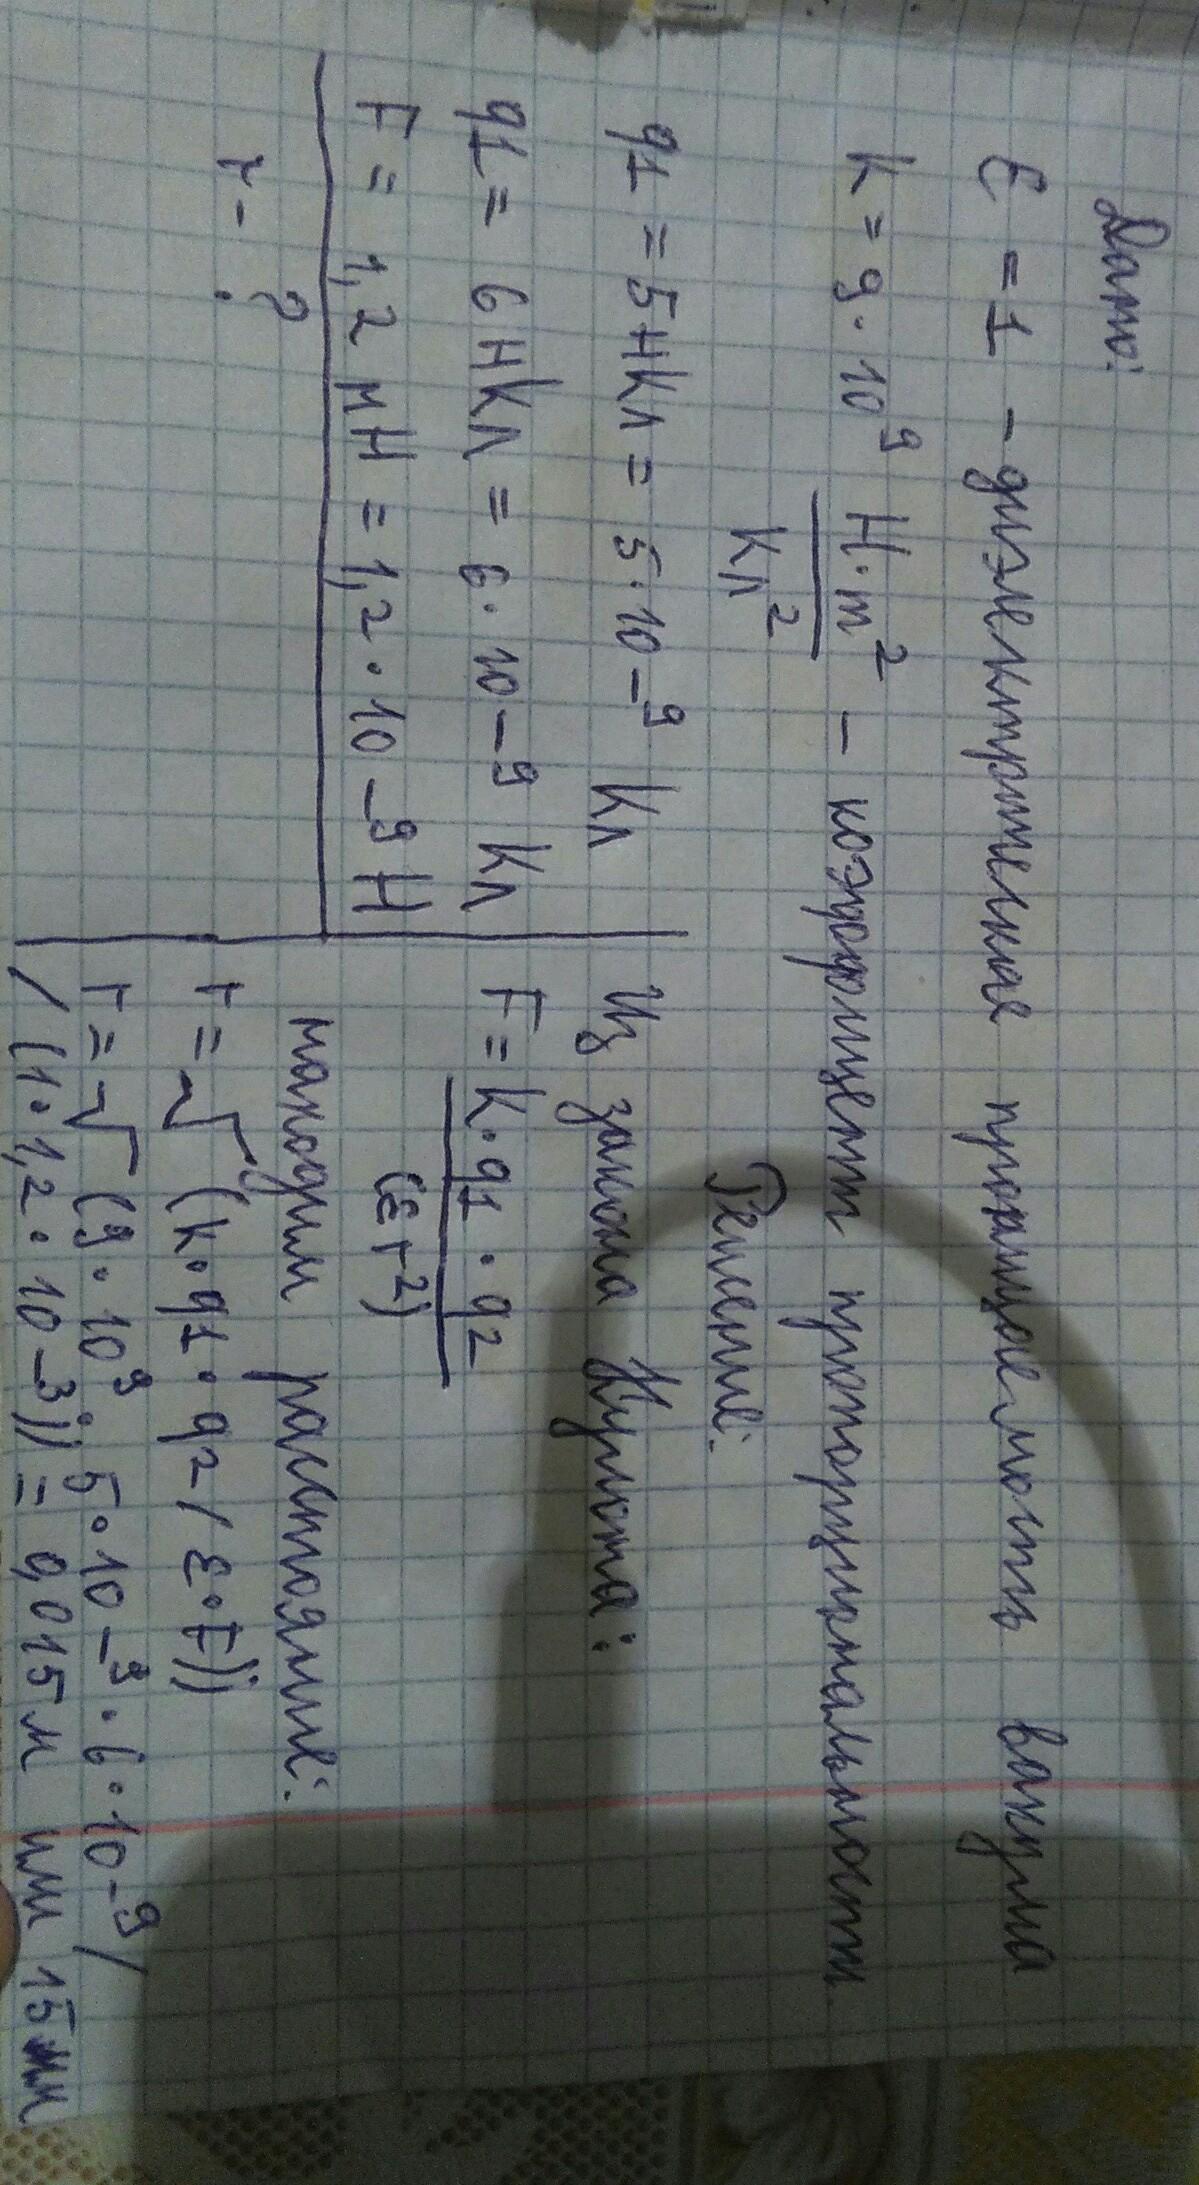 Дано:
ε = 1 - диэлектрические проницаемость вакуума
K = 9 · 10⁹ H·m²/Kл² - коэффициент пропорциональности
q1 = 5 нКл = 5 · 10-⁹ Кл
q1 = 6 нКл = 6 · 10-⁹ Кл
F = 1,2 мН = 1,2 · 10-⁹ Н
r - ?
Решение:
Из закона Кулона:
F = K·q1·q2/(εr²)
находим расстояние:
r = √(k·q1·q2/(ε·F))
r = √(9·10⁹·5·10-⁹·6·10-⁹/
/(1·1,2·10-³)) = 0,015м или 15мм